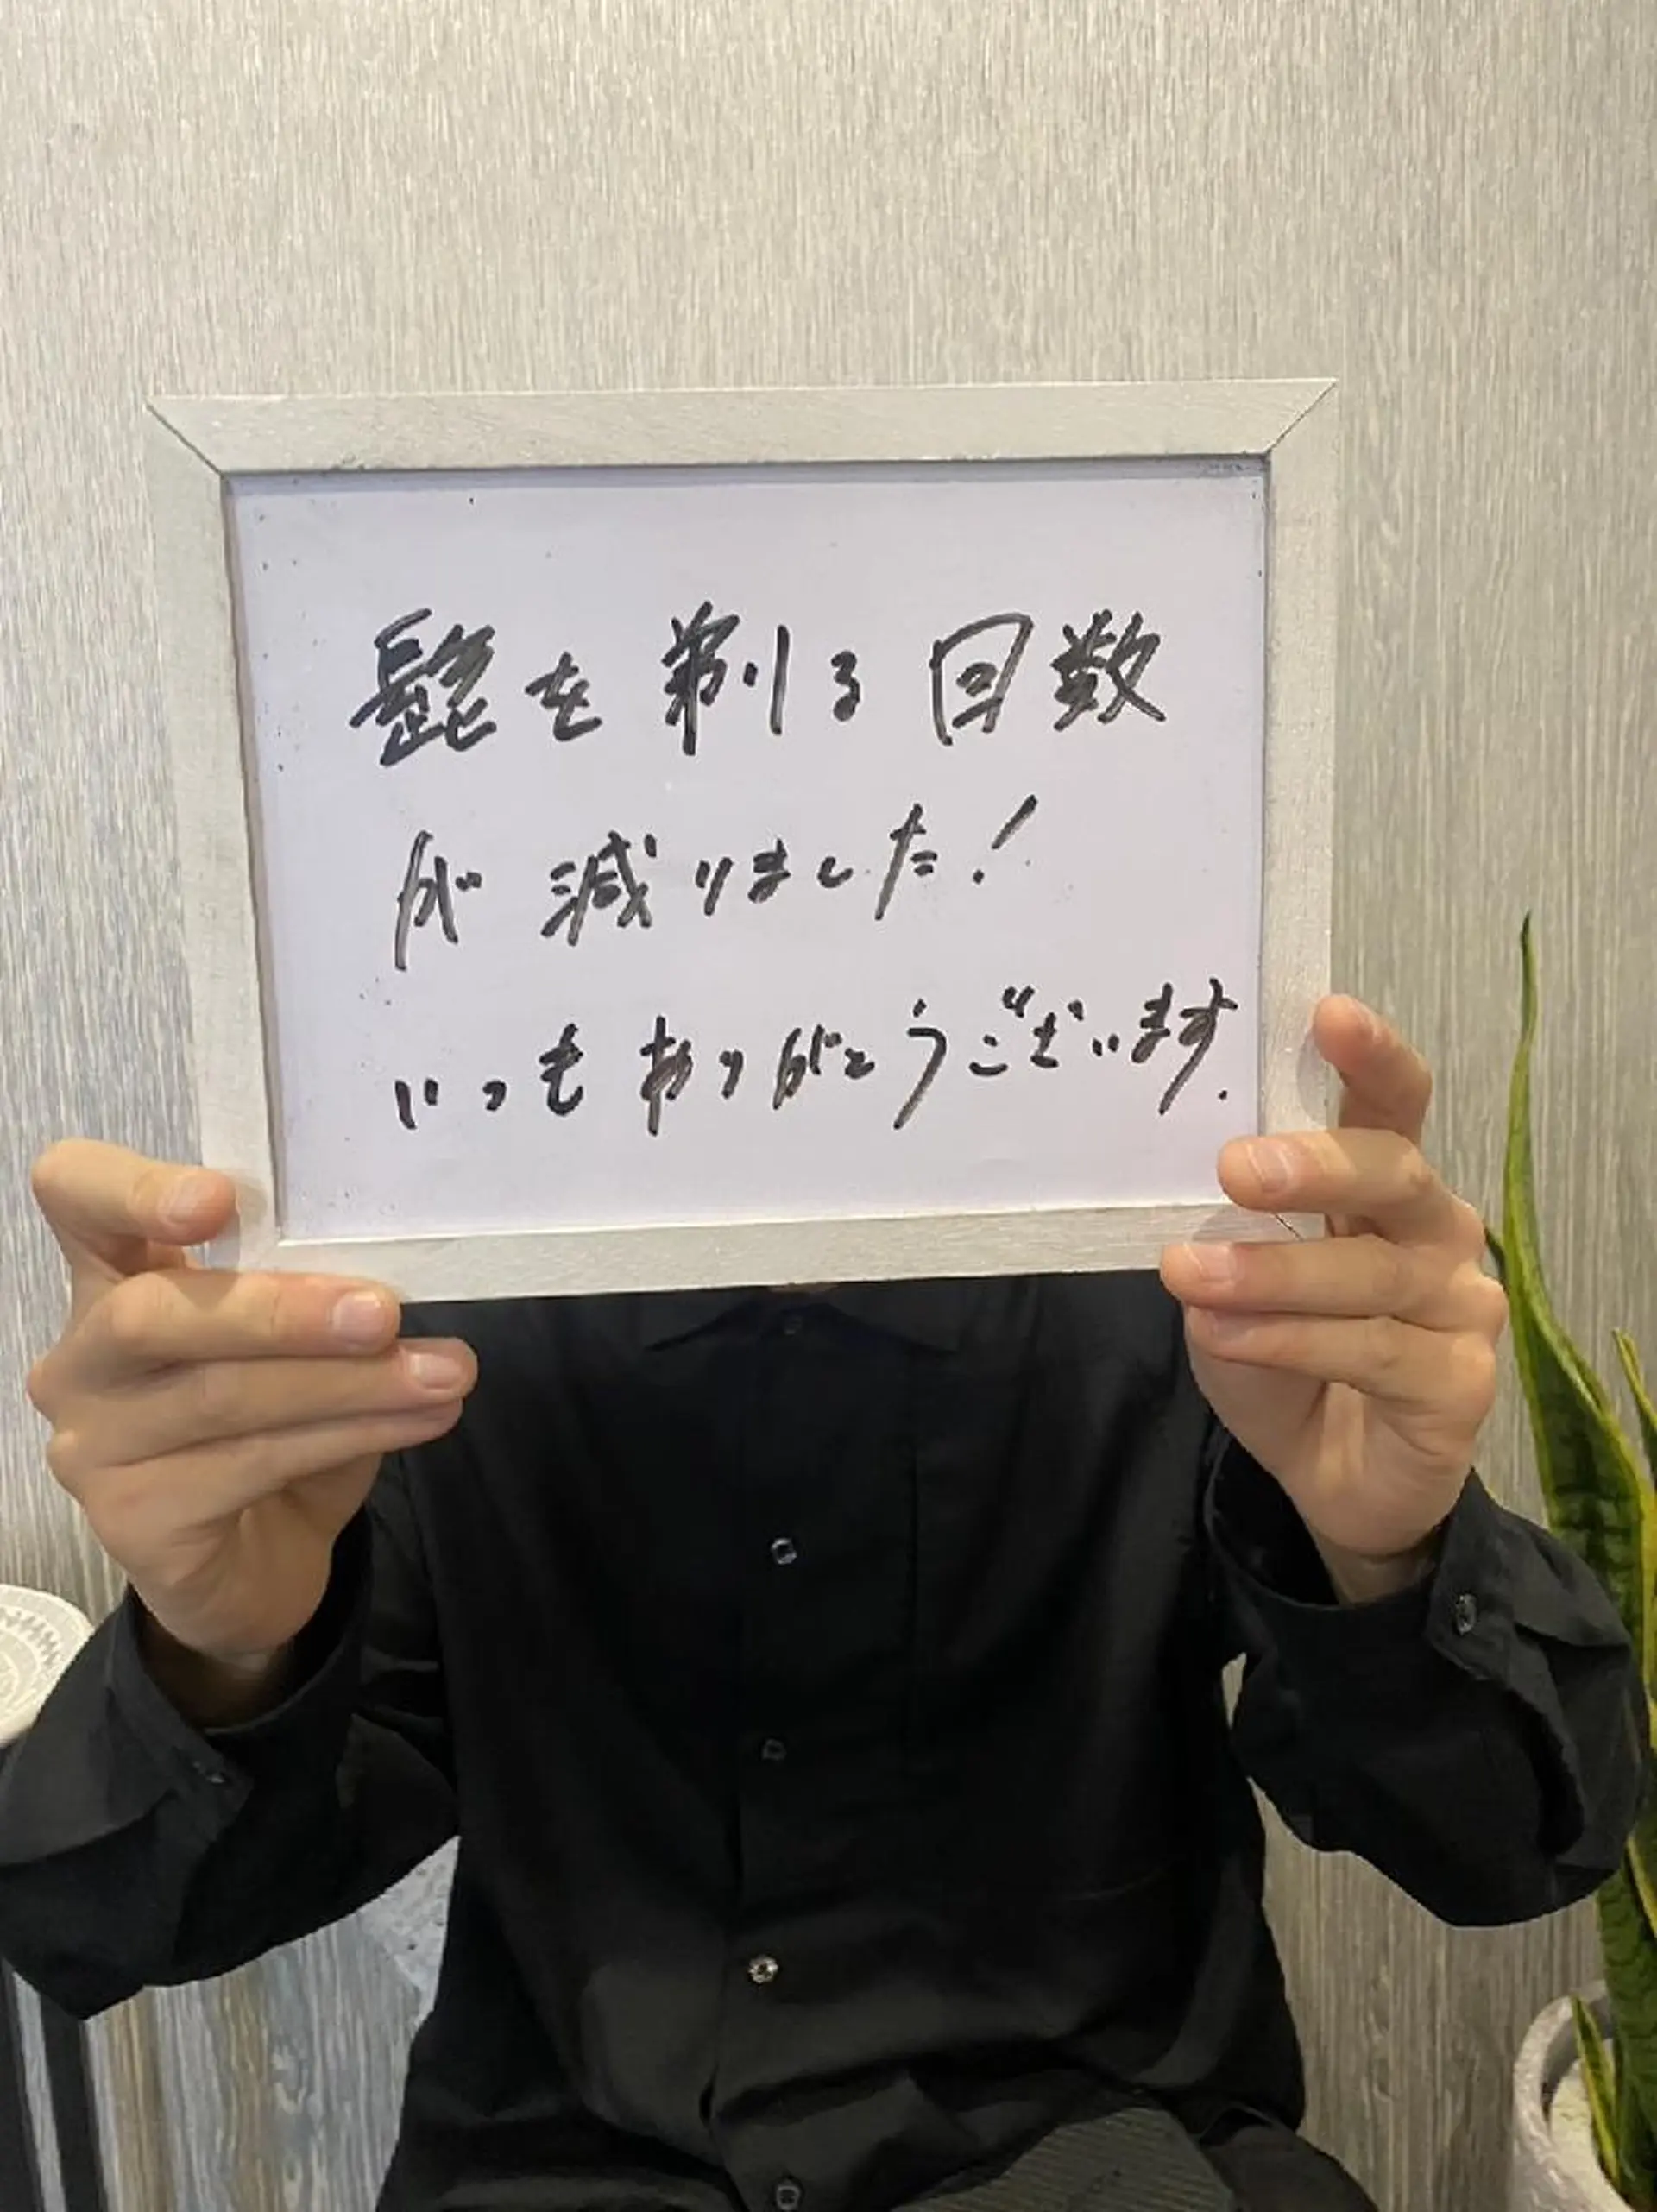 髭を剃る回数
が減りました!
いつもありがとうございます.